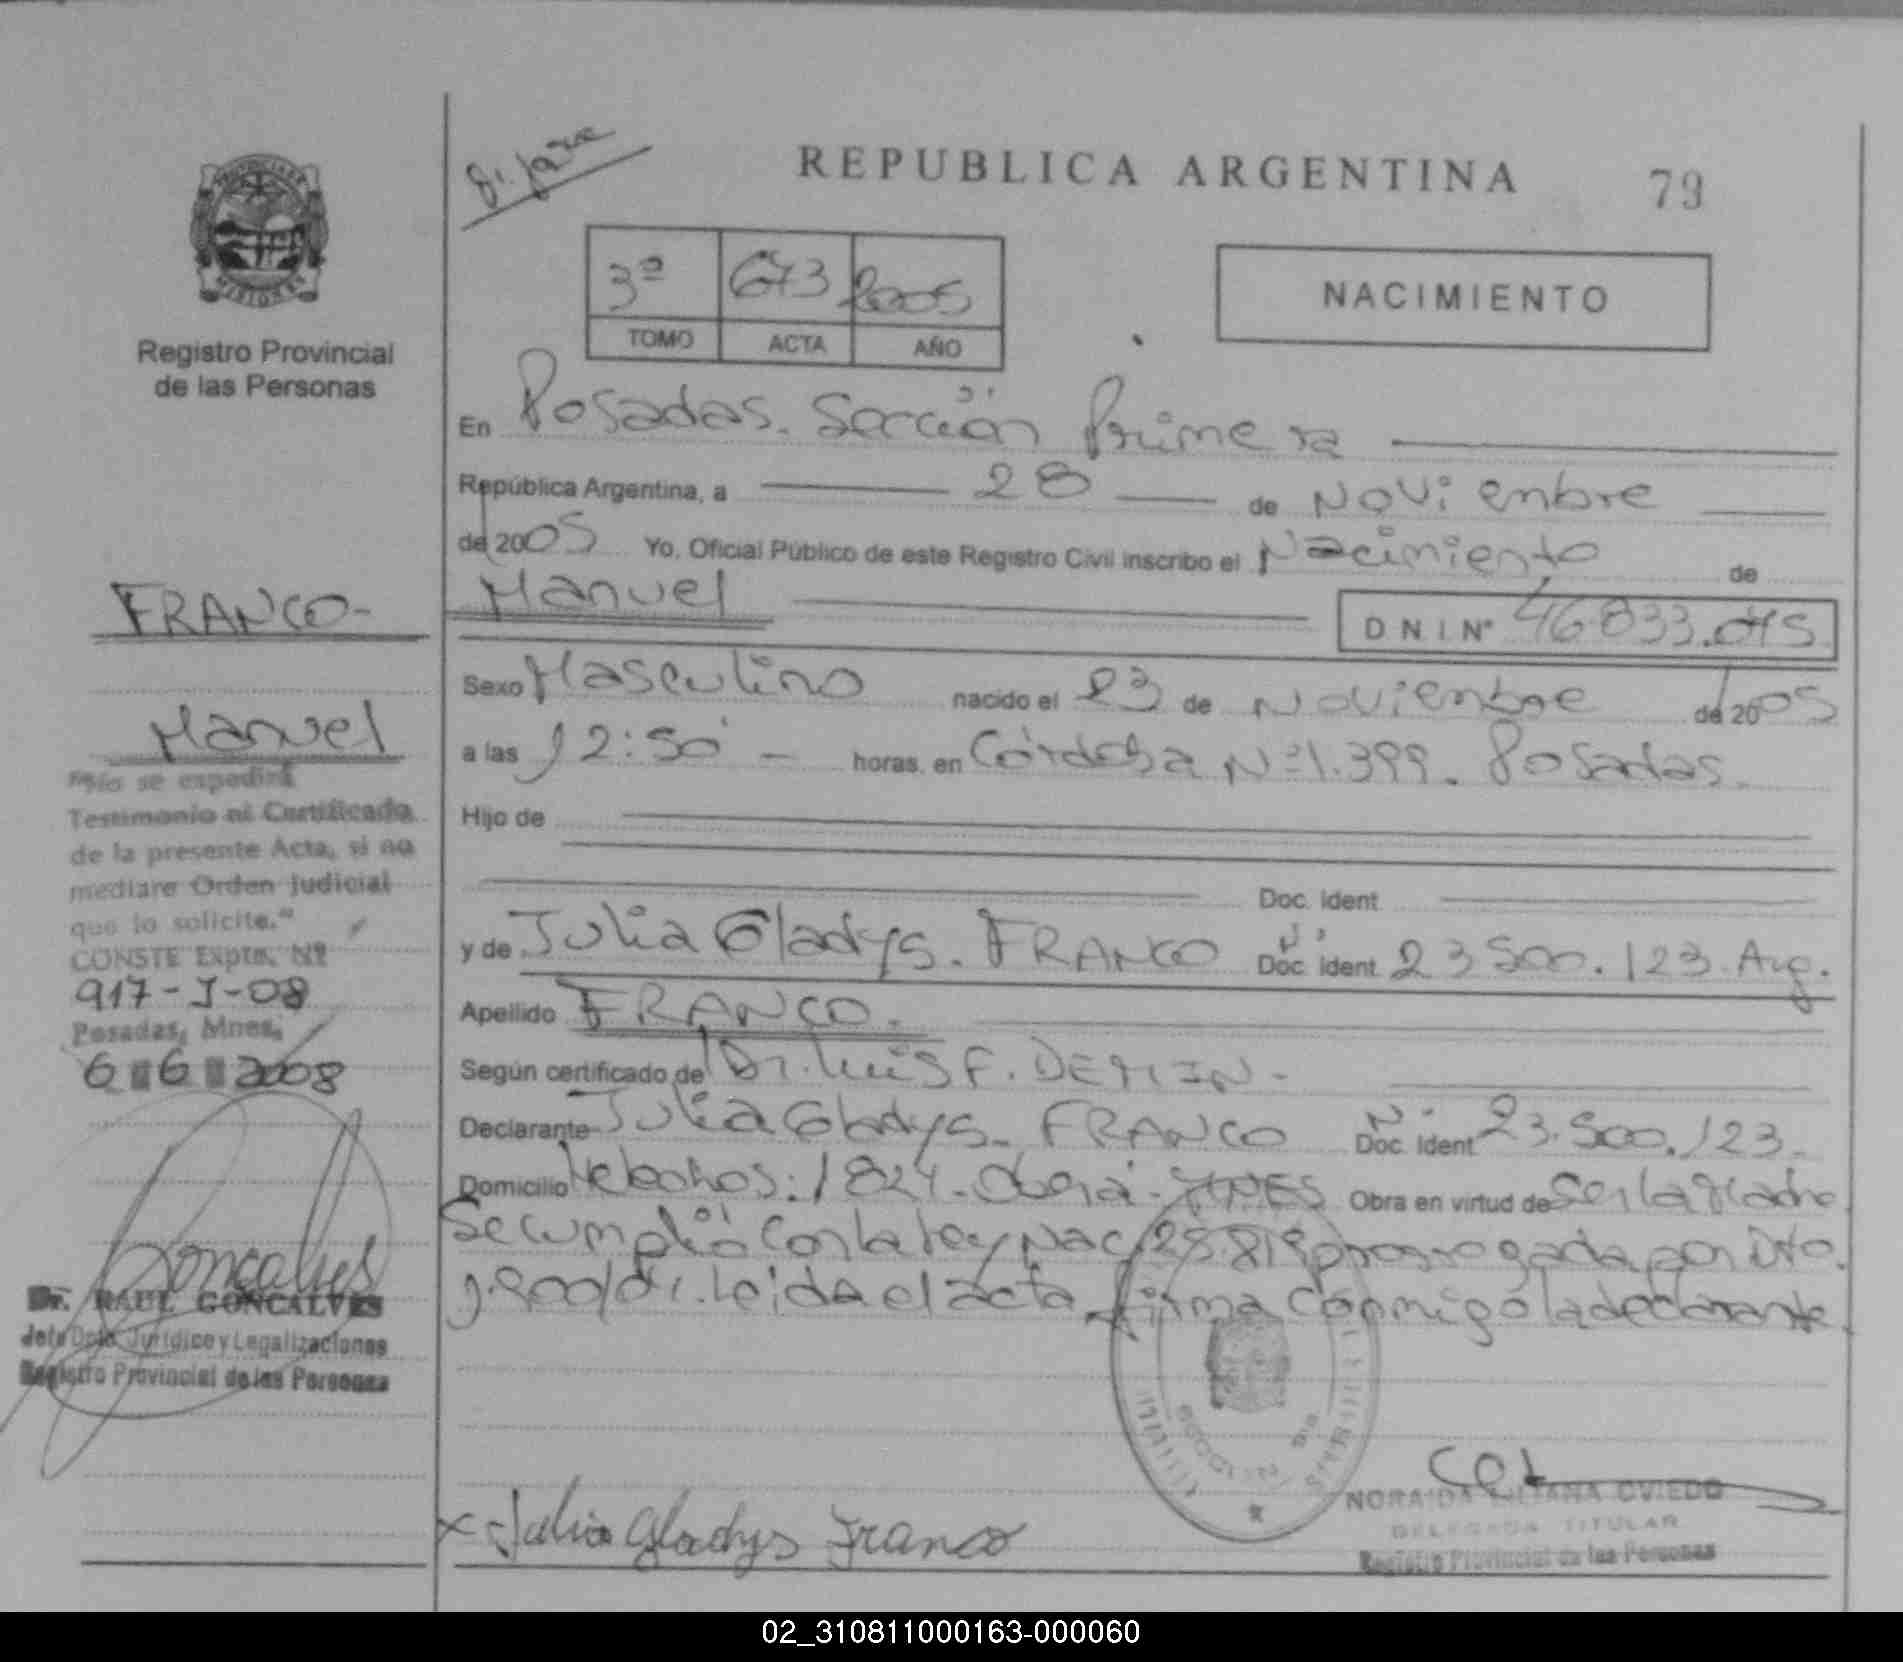 REPUBLICA ARGENTINA
79
3º 673 2005
TOMO ACTA AÑO
NACIMIENTO
Registro Provincial
de las Personas
FRANCO-
Manuel
"No se expedirá
Testimonio ni Certificado
de la presente Acta, si no
mediare Orden Judicial
que lo solicite."
CONSTE Expte. Nº
917-J-08
Posadas, Mnes,
6 6 2008
Dr. RAUL GONCALVES
Jefe Dpto. Jurídico y Legalizaciones
Registro Provincial de las Personas
En Posadas. Sección Primera
República Argentina, a 28 de Noviembre
de 2005 Yo, Oficial Público de este Registro Civil inscribo el Nacimiento de
Manuel
D N I Nº 46.833.045
Sexo Masculino nacido el 23 de Noviembre de 2005
a las 12:50 - horas, en Córdoba Nº 1.399. Posadas.
Hijo de
Doc. Ident.
y de Julia Gladys. FRANCO Doc. Ident. 23.500.123. Arg.
Apellido FRANCO.
Según certificado de Dr. Luis F. DEMIN.-
Declarante Julia Gladys. FRANCO Doc. Ident. 23.500.123.
Domicilio 1824. Oberá. MNES Obra en virtud de Ser la Madre
Se cumplió con la Ley Nac. 25.819 prorrogada por Dto.
Leída el acta firma conmigo la declarante.
x Julia Gladys Franco
NORAIDA LILIANA OVIEDO
DELEGADA TITULAR
Registro Provincial de las Personas
02_310811000163-000060